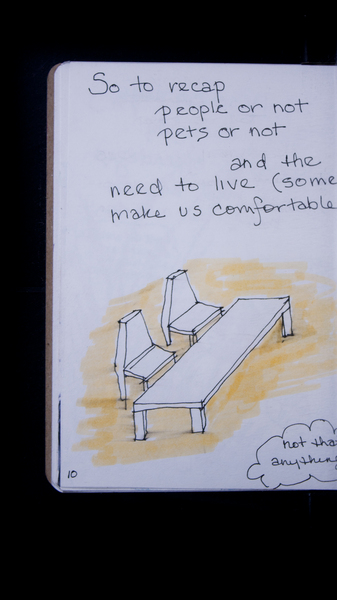 So to recap
people or not
pets or not
and the
need to live (some
make us comfortable
not tha
anything
10